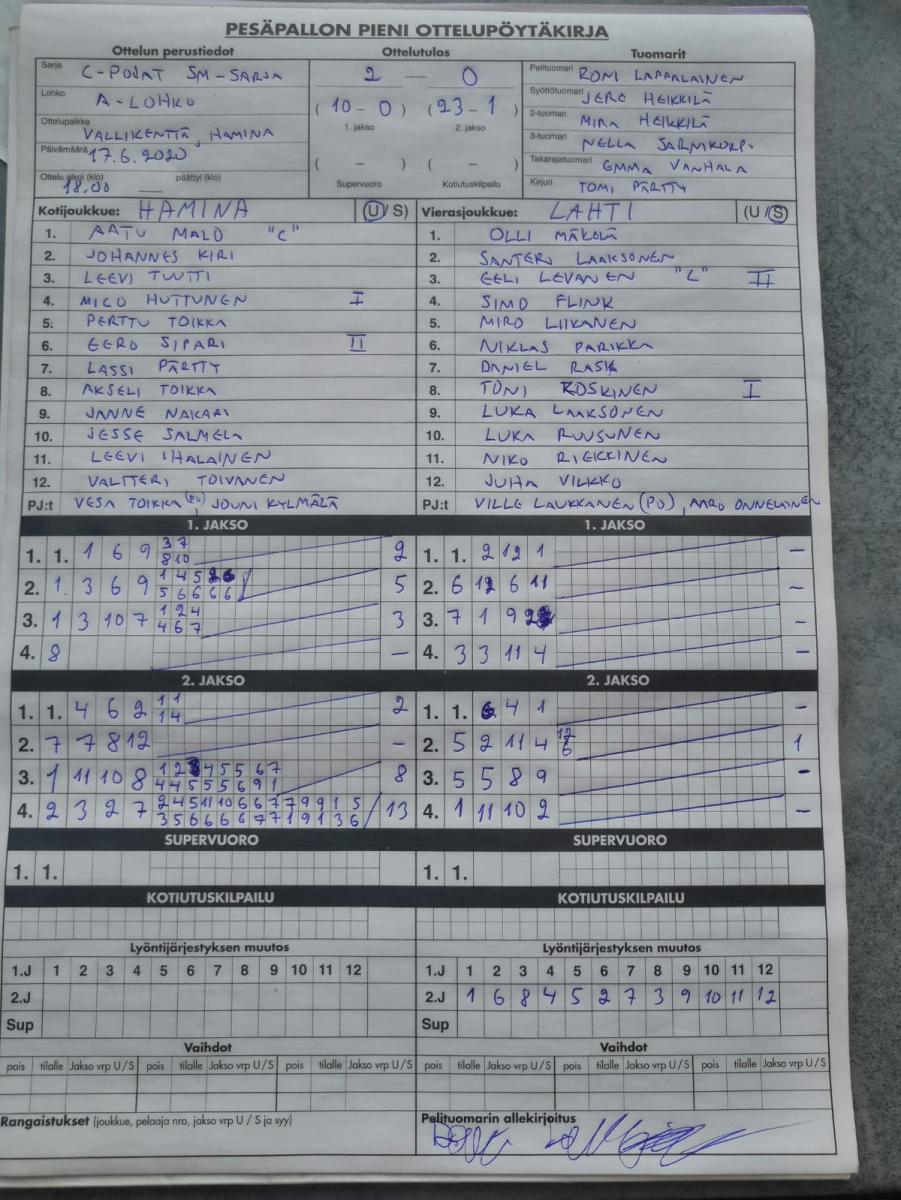 PESÄPALLON PIENI OTTELUPÖYTÄKIRJA
Ottelun perustiedot
Sarja C-POJAT SM-SARJA
Lohko A-LOHKO
Ottelupaikka VALLIKENTTÄ, HAMINA
Päivämäärä 17.6.2020
Ottelu alkoi (klo) 18.00 päättyi (klo)
Ottelutulos
2 — 0
(10-0) (23-1)
1. jakso 2. jakso
( - ) ( - )
Supervuoro Kotiutuskilpailu
Tuomarit
Pelituomari RONI LAPPALAINEN
Syöttötuomari JERE HEIKKILÄ
2-tuomari MIRA HEIKKILÄ
3-tuomari NELLA SARMKORPI
Takarajatuomari EMMA VANHALA
Kirjuri TOMI PÄRTTY
Kotijoukkue: HAMINA (U/S)
1. AATU MALO "C"
2. JOHANNES KIRI
3. LEEVI TUUTTI
4. MICO HUTTUNEN I
5. PERTTU TOIKKA
6. EERO SIPARI II
7. LASSI PÄRTTY
8. AKSELI TOIKKA
9. JANNE NAKARI
10. JESSE SALMELA
11. LEEVI IHALAINEN
12. VALTTERI TOIVANEN
PJ:t VESA TOIKKA (PG), JOUNI KYLMÄLÄ
Vierasjoukkue: LAHTI (U/S)
1. OLLI MÄKELÄ
2. SANTERI LAAKSONEN
3. EELI LEVANEN "C" II
4. SIMO FLINK
5. MIRO LIIKANEN
6. NIKLAS PARIKKA
7. DANIEL RASK
8. TONI KOSKINEN I
9. LUKA LAAKSONEN
10. LUKA RUUSUNEN
11. NIKO RIEKKINEN
12. JUHA VILKKO
PJ:t VILLE LAUKKANEN (PG), AARO ONNELAINEN
1. JAKSO
1. 1. 1 6 9 3 7 2
8 10
2. 1. 3 6 9 1 4 5 5
5 6 6 6 6
3. 1 3 10 7 1 2 4 3
4 6 7
4. 8 –
1. JAKSO
1. 1. 2 12 1 –
2. 6 12 6 11 –
3. 7 1 9 –
4. 3 3 11 4 –
2. JAKSO
1. 1. 4 6 2 1 1 2
1 4
2. 7 7 8 12 –
3. 1 11 10 8 1 2 4 5 5 6 7 8
4 4 5 5 5 6 9 1
4. 2 3 2 7 2 4 5 11 10 6 6 7 7 9 9 1 5 13
3 5 6 6 6 6 7 7 1 9 1 3 6
2. JAKSO
1. 1. 6 4 1 –
2. 5 2 11 4 12 1
6
3. 5 5 8 9 –
4. 1 11 10 2 –
SUPERVUORO
1. 1.
SUPERVUORO
1. 1.
KOTIUTUSKILPAILU
KOTIUTUSKILPAILU
Lyöntijärjestyksen muutos
1.J 1 2 3 4 5 6 7 8 9 10 11 12
2.J
Sup
Lyöntijärjestyksen muutos
1.J 1 2 3 4 5 6 7 8 9 10 11 12
2.J 1 6 8 4 5 2 7 3 9 10 11 12
Sup
Vaihdot
pois tilalle Jakso vrp U/S pois tilalle Jakso vrp U/S pois tilalle Jakso vrp U/S
Vaihdot
pois tilalle Jakso vrp U/S pois tilalle Jakso vrp U/S pois tilalle Jakso vrp U/S
Rangaistukset (joukkue, pelaaja nro, jakso vrp U / S ja syy)
Pelituomarin allekirjoitus